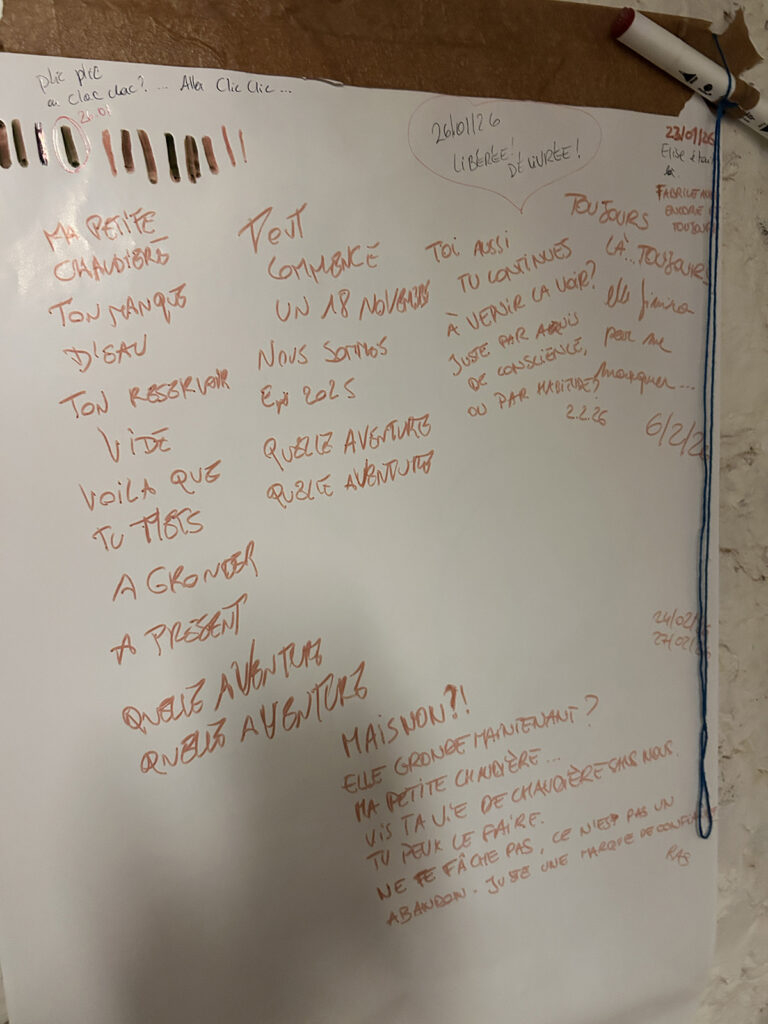 plic plic
ou clac clac? ... Allo Clic Clic ...
26.01
26/01/26
LIBÉRÉE!
DÉLIVRÉE!
23/01/26
Elise était
là
ENCORE
TOUJOURS
MA PETITE
CHAUDIÈRE
TON MANQUE
D'EAU
TON RESERVOIR
VIDE
VOILA QUE
TU METS
A GRONDER
A PRESENT
QUELLE AVENTURE
QUELLE AVENTURE
TOUT
COMMENCE
UN 18 NOVEMBRE
NOUS SOMMES
EN 2025
QUELLE AVENTURE
QUELLE AVENTURE
TOI AUSSI
TU CONTINUES
À VENIR LA VOIR?
JUSTE PAR ACQUIS
DE CONSCIENCE,
OU PAR HABITUDE?
2.2.26
TOUJOURS
LÀ... TOUJOURS
elle finira
par me
manquer...
6/2/26
24/02/26
27/02/26
MAIS NON?!
ELLE GRONDE MAINTENANT?
MA PETITE CHAUDIÈRE...
VIS TA VIE DE CHAUDIÈRE SANS NOUS.
TU PEUX LE FAIRE.
NE TE FÂCHE PAS, CE N'EST PAS UN
ABANDON. JUSTE UNE MARQUE DE CONFIANCE